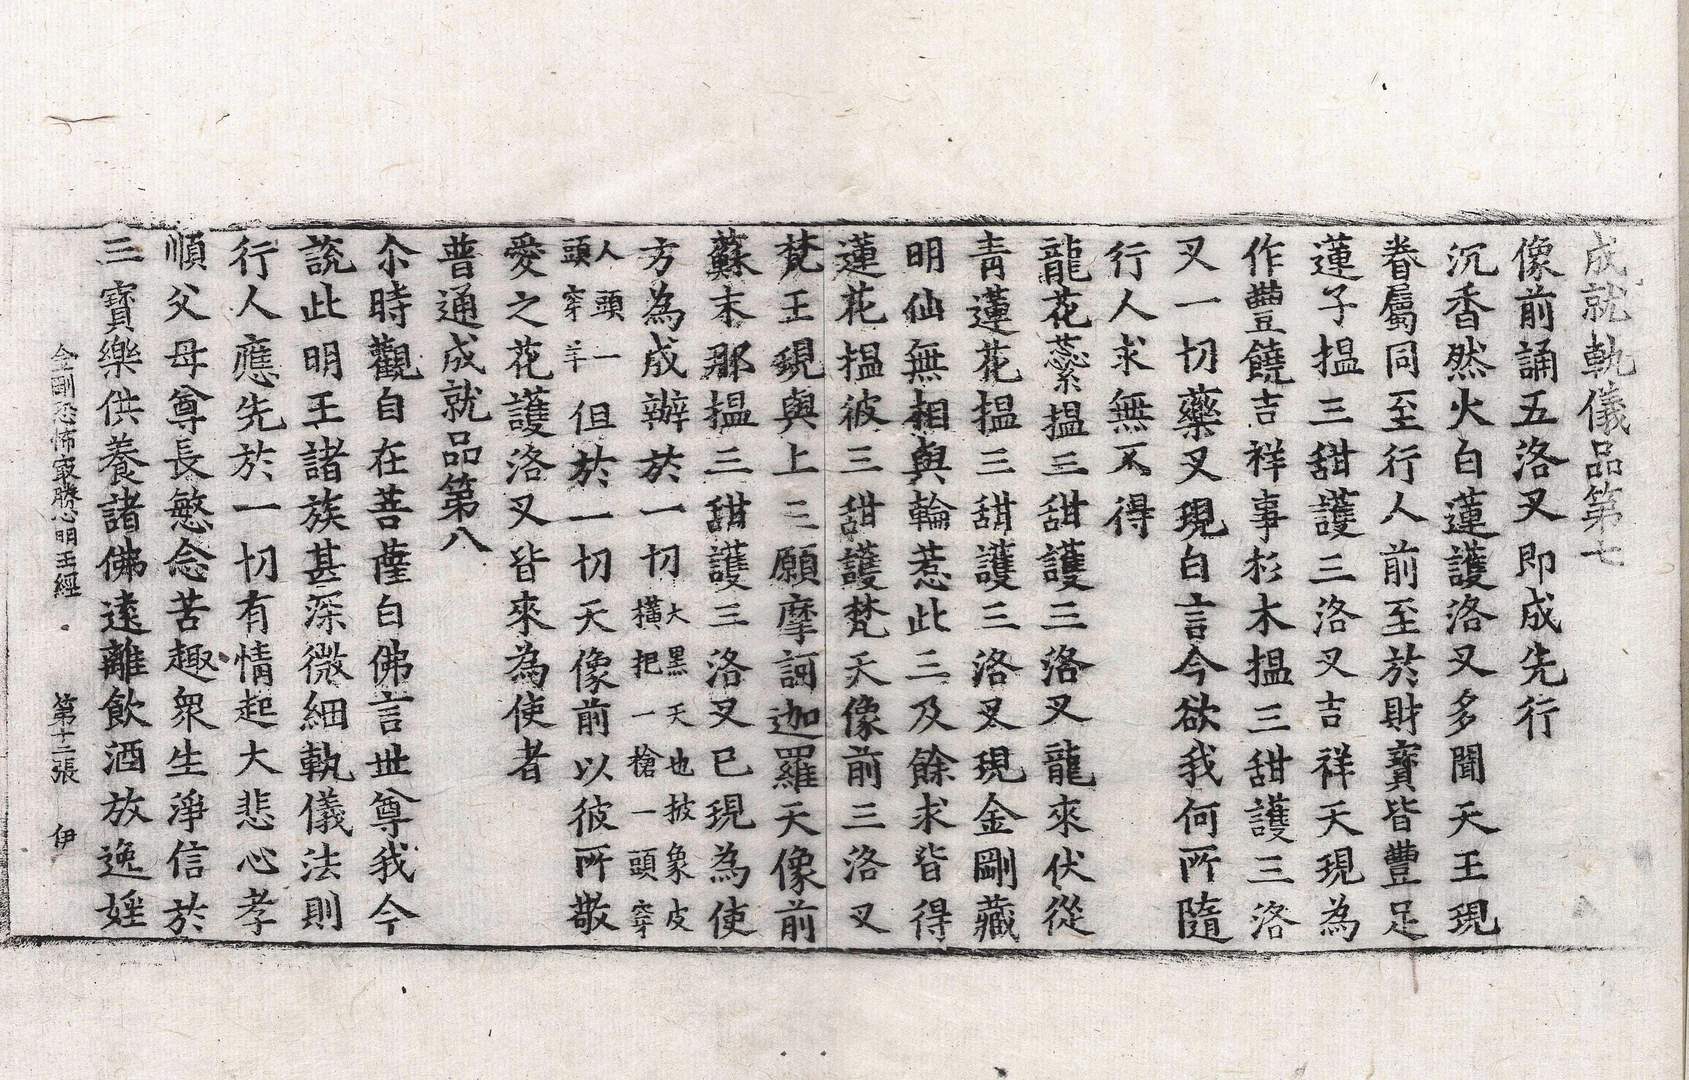 成就軌儀品第七
像前誦五洛叉即成先行
沉香然火白蓮護洛叉多聞天王現
眷屬同至行人前至於財寶皆豊足
蓮子搵三甜護三洛叉吉祥天現為
作豊饒吉祥事杉木搵三甜護三洛
叉一切藥叉現白言今欲我何所隨
行人求無不得
龍花蘂搵三甜護三洛叉龍來伏從
青蓮花搵三甜護三洛叉現金剛藏
明仙無相與輪惹此三及餘求皆得
蓮花搵彼三甜護梵天像前三洛叉
梵王現與上三願摩訶迦羅天像前
蘇末那搵三甜護三洛叉已現為使
方為成辦於一切大黑天也披象皮橫把一槍一頭穿
人頭一頭穿羊但於一切天像前以彼所敬
愛之花護洛叉皆來為使者
普通成就品第八
尒時觀自在菩薩白佛言世尊我今
說此明王諸族甚深微細軌儀法則
行人應先於一切有情起大悲心孝
順父母尊長慜念苦趣衆生淨信於
三寶樂供養諸佛遠離飲酒放逸婬
金剛恐怖最勝心明王經 第十二張 伊